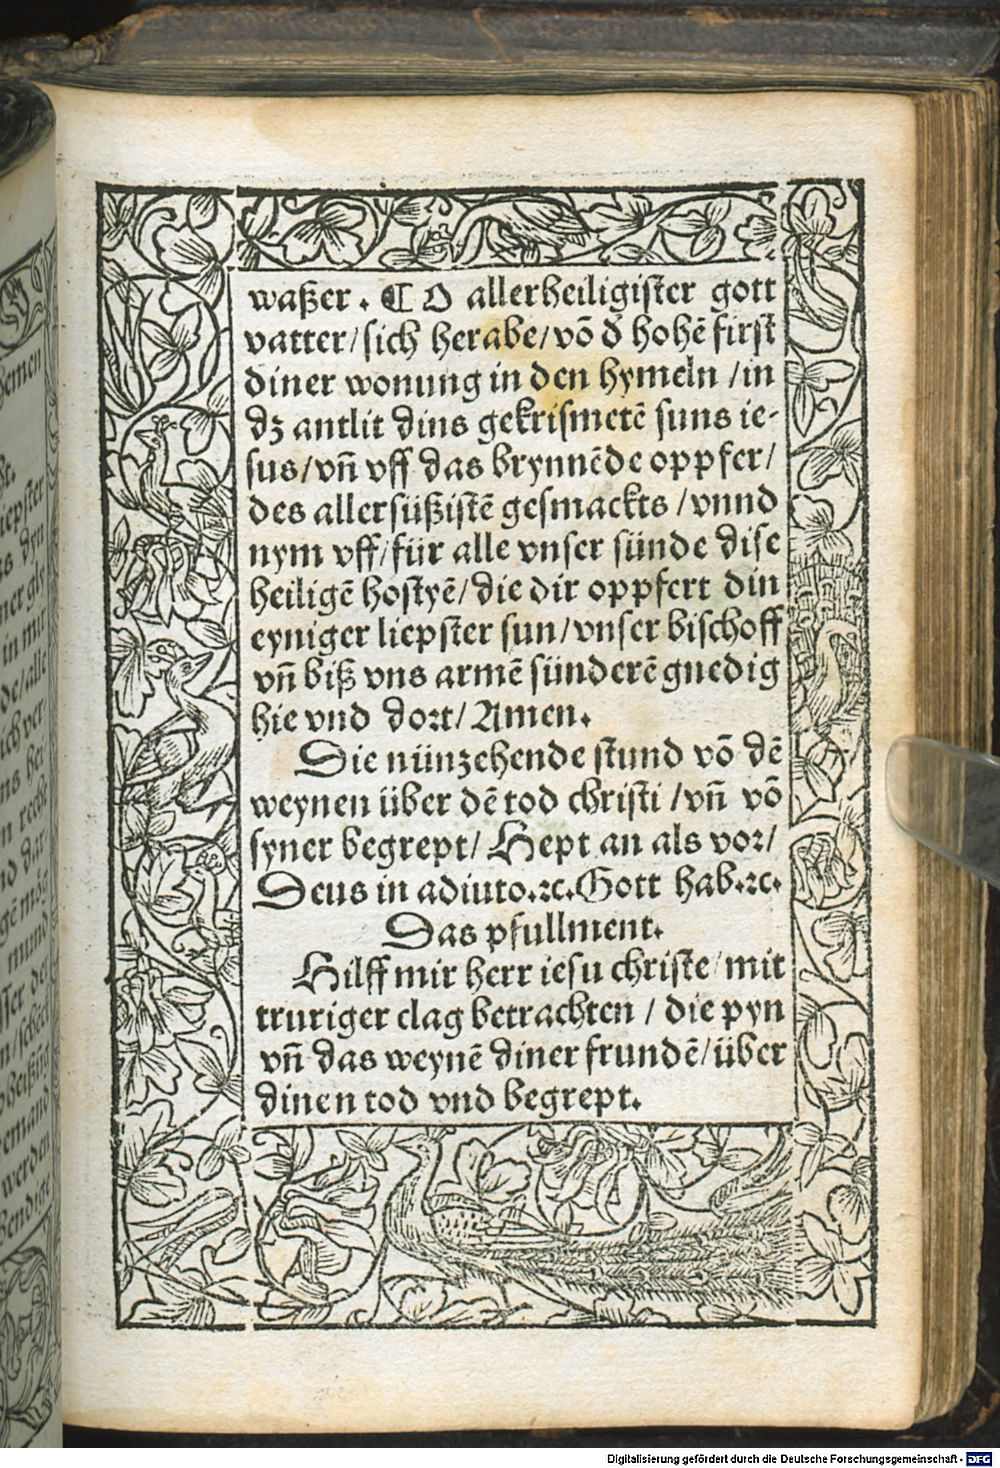 waßer. ⸿ O allerheiligister gott
vatter/sich herabe/võ đ hohẽ first
diner wonung in den hymeln /in
dz antlit dins gekrismetẽ suns ie-
sus/vn̄ vff das brynnẽde oppfer/
des allersüßistẽ gesmackts /vnnd
nym vff/für alle vnser sünde dise
heiligẽ hostyẽ/die dir oppfert din
eyniger liepster sun/vnser bischoff
vn̄ biß vns armẽ sünderẽ gnedig
hie vnd dort/ Amen.
Die nünzehende stund võ dẽ
weynen über dẽ tod christi /vn̄ võ
syner begrept/ Hept an als vor/
Deus in adiuto.ꝛc.Gott hab.ꝛc.
Das pfullment.
Hilff mir herr iesu christe/mit
truriger clag betrachten / die pyn
vn̄ das weynẽ diner frundẽ/über
dinen tod vnd begrept.
hemen
liepster
dyn
in mir
de/alle
ich ver/
n recht
nd dar
mund
werden
Digitalisierung gefördert durch die Deutsche Forschungsgemeinschaft - DFG